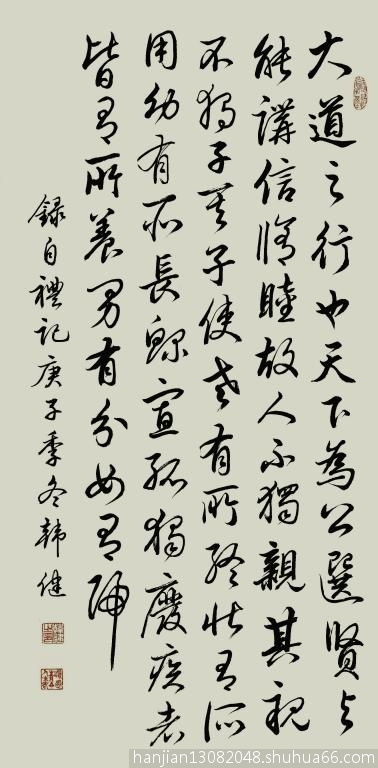 大道之行也天下為公選賢与
能講信脩睦故人不獨親其親
不獨子其子使老有所終壯有所
用幼有所長鰥寡孤獨廢疾者
皆有所養男有分女有歸
錄自禮記庚子季冬韓健
hanjian13082048.shuhua66.com